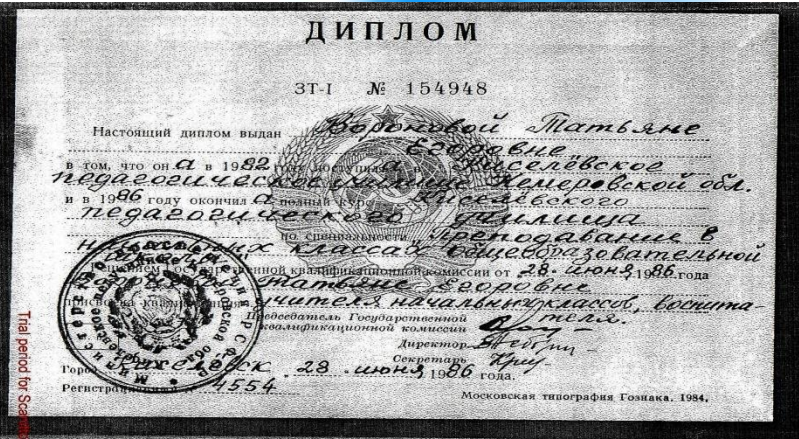 ДИПЛОМ
ЗТ-I № 154948
Настоящий диплом выдан Вороновой Татьяне
Егоровне
в том, что он а в 1982 году поступил а в Киселёвское
педагогическое училище Кемеровской обл.
и в 1986 году окончил а полный курс Киселевского
педагогического училища
по специальности преподавание в
начальных классах общеобразовательной
Решением Государственной квалификационной комиссии от 28 июня 1986 года
Татьяне Егоровне
присвоена квалификация учителя начальных классов, воспита-
теля.
Председатель Государственной
квалификационной комиссии
Директор
Секретарь
Город Киселевск 28 июня 1986 года.
Регистрационный № 4554
Московская типография Гознака. 1984.
Trial period for